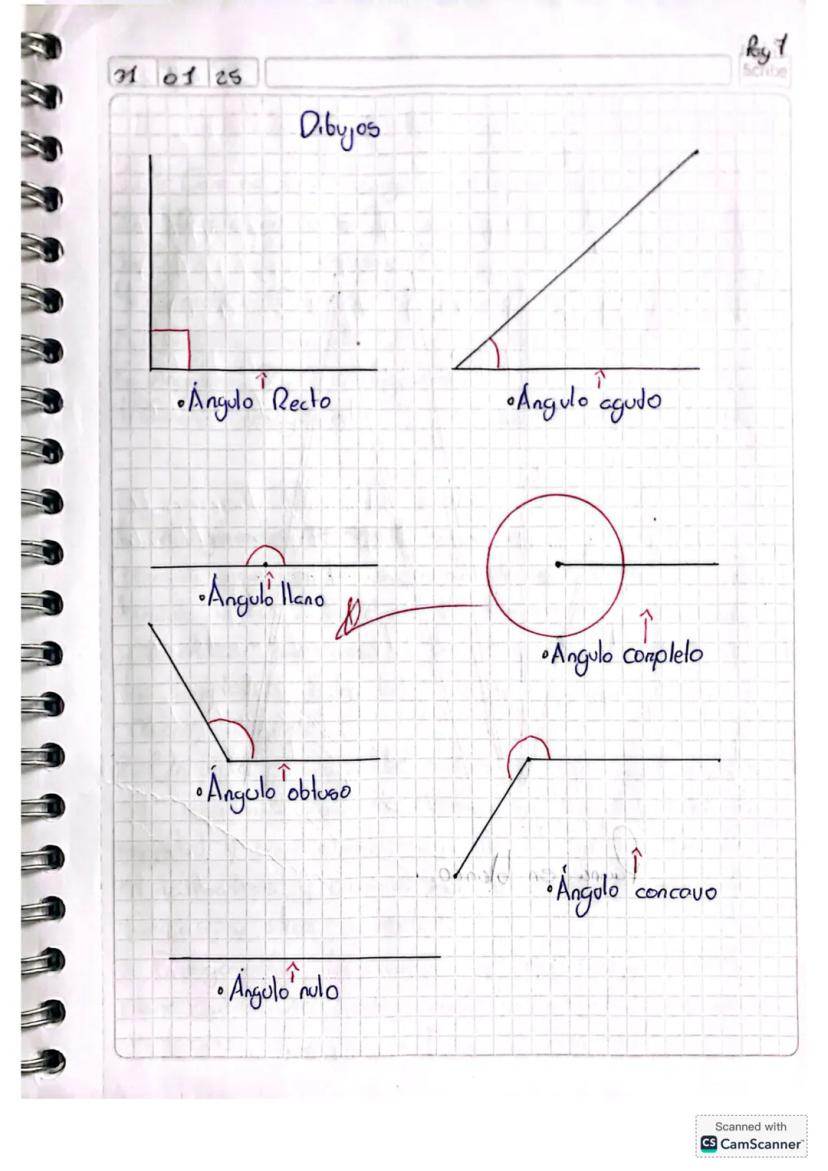 Pag 1
Scribe
31 01 25
Dibujos
•Ángulo Recto
•Ángulo agudo
•Ángulo llano
•Angulo completo
•Ángulo obtuso
•Ángulo concavo
•Ángulo nulo
Scanned with
CS CamScanner